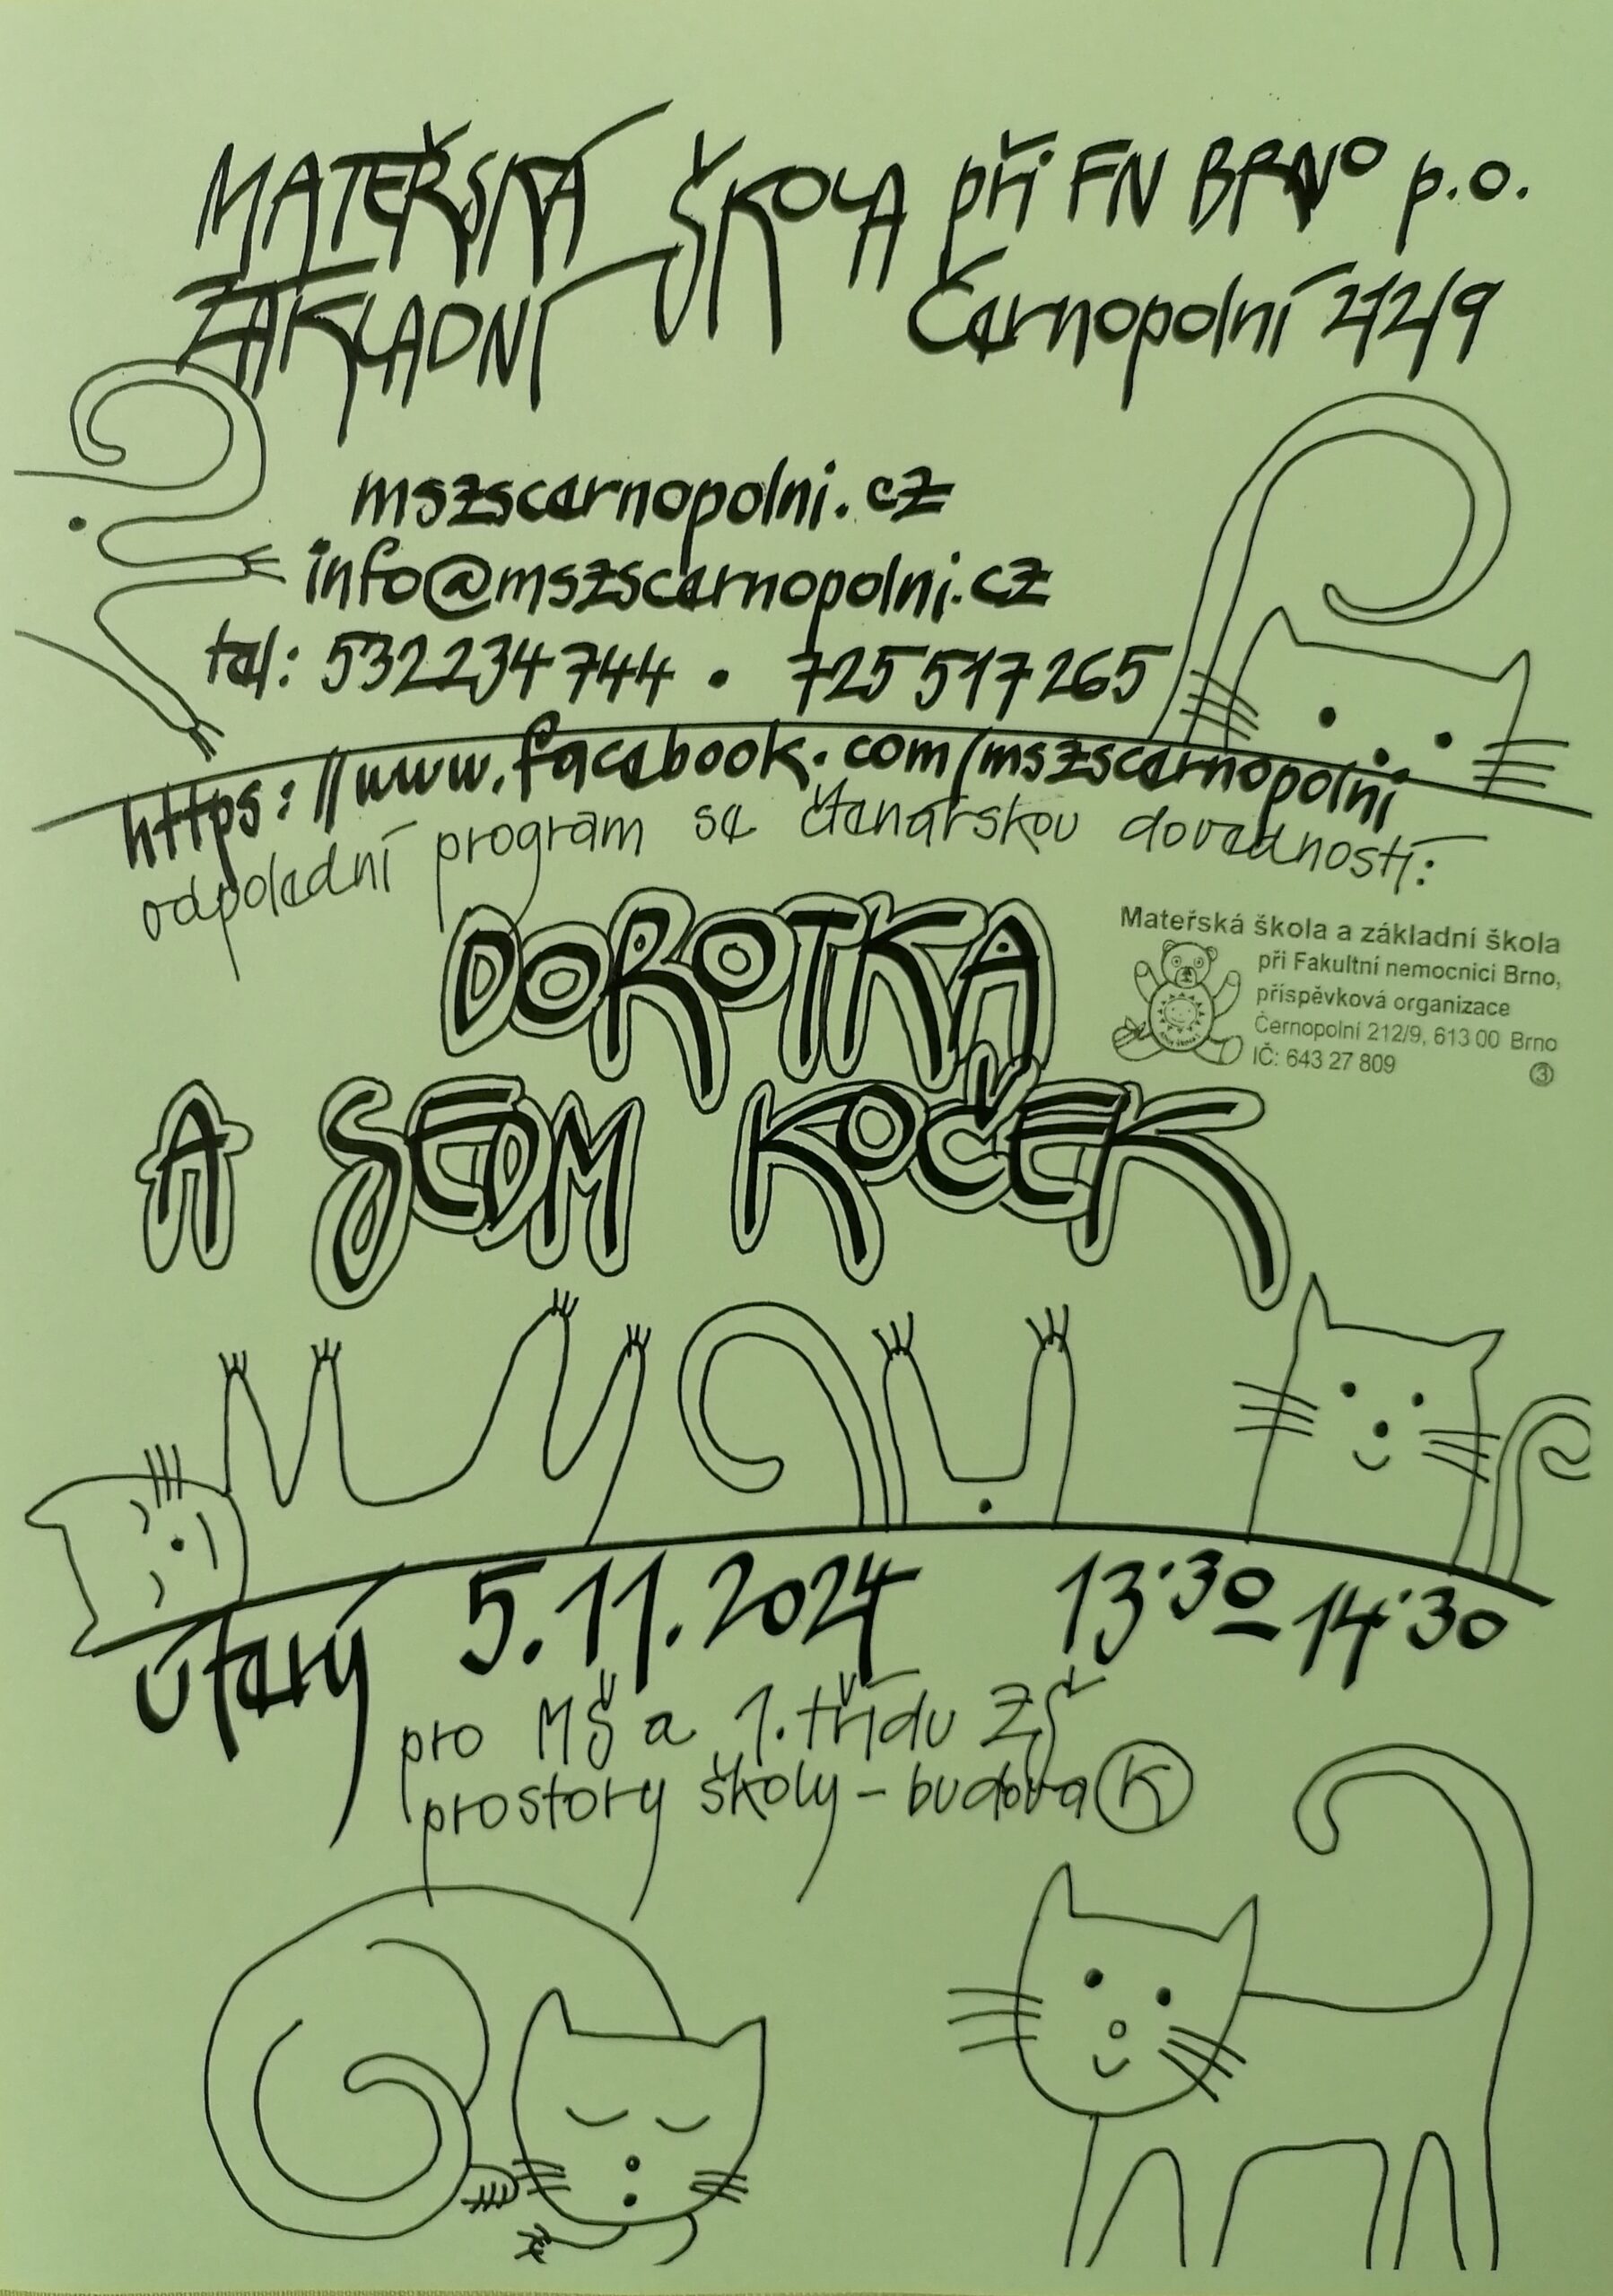 MATEŘSKÁ ŠKOLA při FN BRNO p.o.
ZÁKLADNÍ Černopolní 212/9
mszscernopolni.cz
info@mszscernopolni.cz
tel: 532234744 • 725517265
https://www.facebook.com/mszscernopolni
odpolední program se čtenářskou dovedností:
DOROTKA
A SEDM KOČEK
Mateřská škola a základní škola
při Fakultní nemocnici Brno,
příspěvková organizace
Černopolní 212/9, 613 00 Brno
IČ: 643 27 809
3
úterý 5.11.2024 13:30-14:30
pro MŠ a 1. třídu ZŠ
prostory školy - budova K